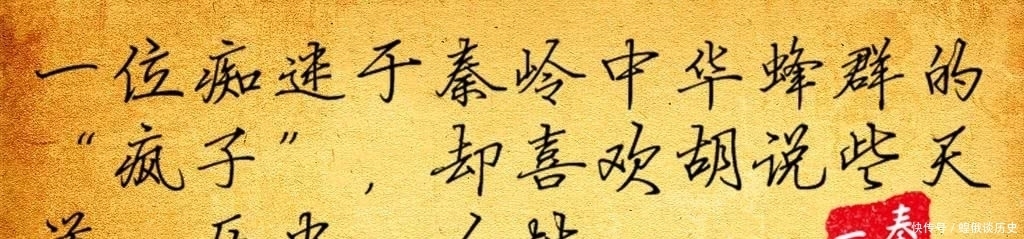 一位痴迷于秦岭中华蜂群的
“疯子”，却喜欢胡说些天
快传号／螳俄谈历史